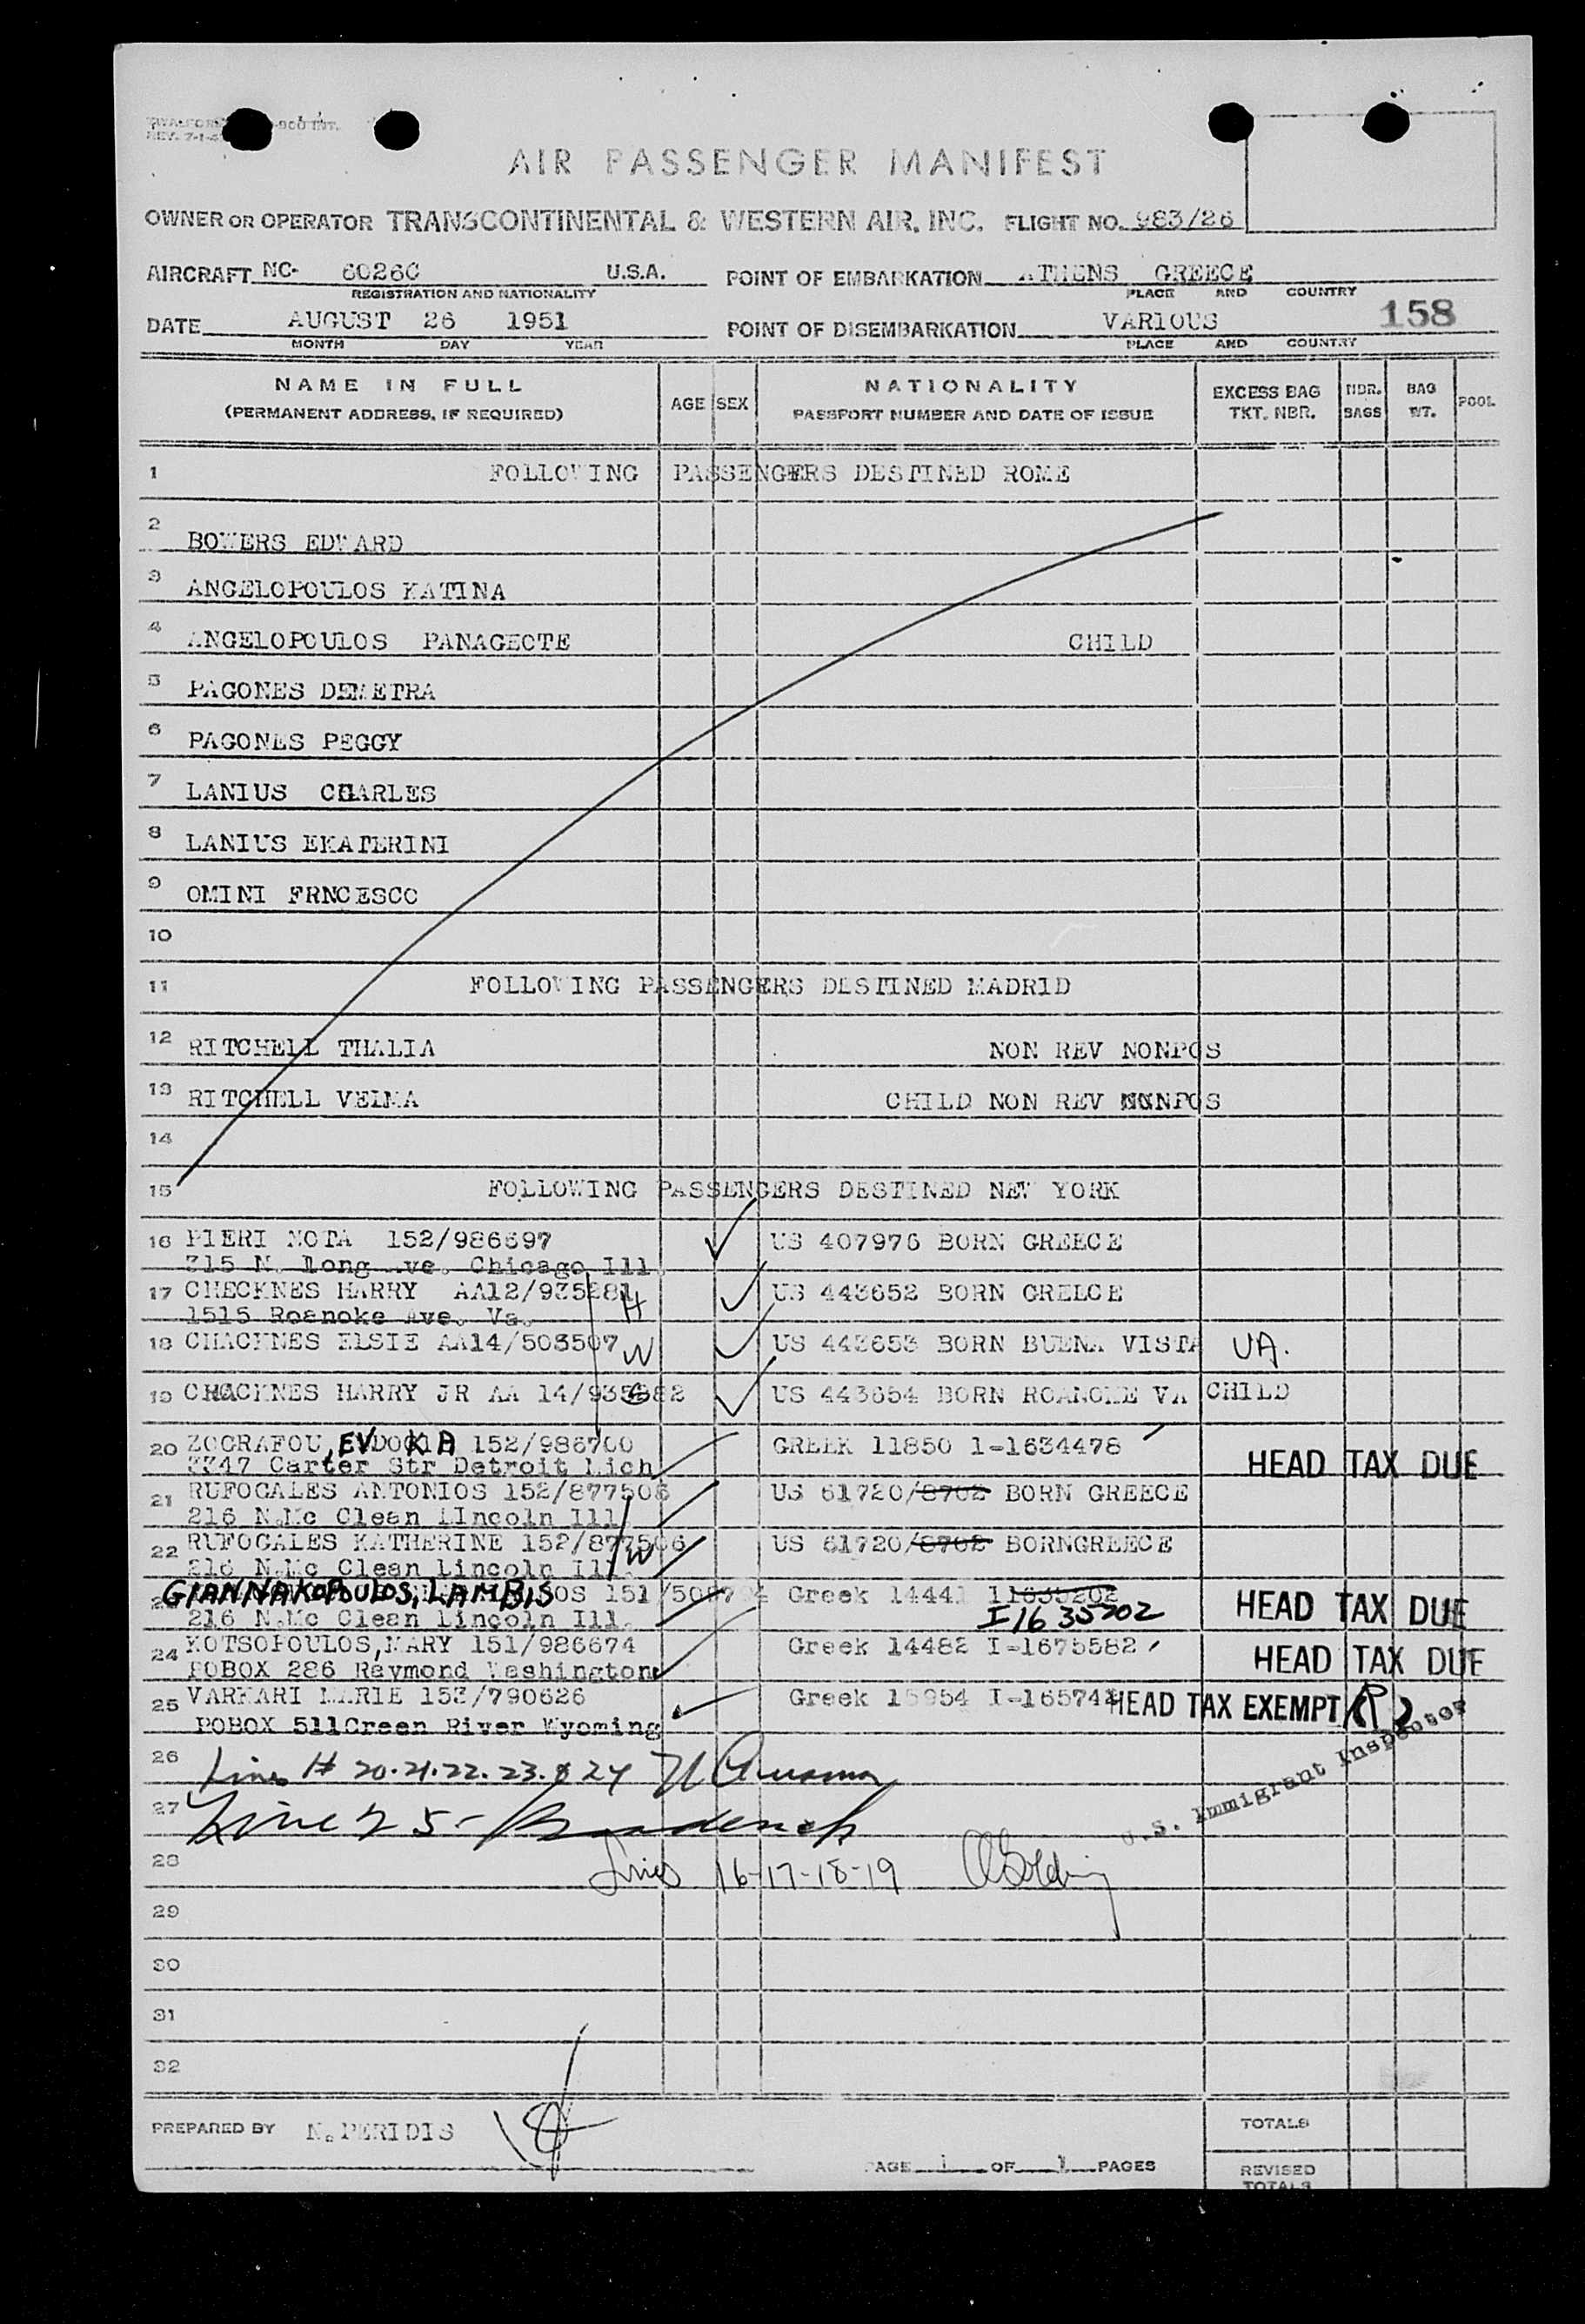 AIR PASSENGER MANIFEST
OWNER OR OPERATOR TRANSCONTINENTAL & WESTERN AIR, INC. FLIGHT NO. 983/26
AIRCRAFT NC- 60260 U.S.A. POINT OF EMBARKATION ATHENS GREECE
REGISTRATION AND NATIONALITY PLACE AND COUNTRY
DATE AUGUST 26 1951 POINT OF DISEMBARKATION VARIOUS 158
MONTH DAY YEAR PLACE AND COUNTRY
NAME IN FULL AGE SEX NATIONALITY EXCESS BAG NBR. BAG POOL
(PERMANENT ADDRESS, IF REQUIRED) PASSPORT NUMBER AND DATE OF ISSUE TKT. NBR. BAGS WT.
1 FOLLOWING PASSENGERS DESTINED ROME
2 BOWERS EDWARD
3 ANGELOPOULOS KATINA
4 ANGELOPOULOS PANAGEOTE CHILD
5 PAGONES DEMETRA
6 PAGONES PEGGY
7 LANIUS CHARLES
8 LANIUS EKATERINI
9 OMINI FRNCESCO
10
11 FOLLOWING PASSENGERS DESTINED MADRID
12 RITCHELL THALIA NON REV NONPOS
13 RITCHELL VELMA CHILD NON REV NONPOS
14
15 FOLLOWING PASSENGERS DESTINED NEW YORK
16 PIERI NOTA 152/986697 US 407976 BORN GREECE
315 N. Long Ave. Chicago Ill.
17 CHECKNES HARRY AA12/935281 H US 443652 BORN GREECE
1515 Roanoke Ave. Va.
18 CHACKNES ELSIE AA14/503507 W US 443653 BORN BUENA VISTA VA.
19 CHACKNES HARRY JR AA 14/935282 US 443654 BORN ROANOKE VA CHILD
20 ZOGRAFOU, EVDOKIA 152/986700 GREEK 11850 1-1634478
3347 Carter Str Detroit Mich HEAD TAX DUE
21 RUFOGALES ANTONIOS 152/877505 US 61720/8702 BORN GREECE
216 N.Mc Clean LIncoln Ill.
22 RUFOGALES KATHERINE 152/877506 W US 61720/8702 BORNGREECE
216 N.Mc Clean Lincoln Ill.
GIANNAKOPOULOS, LAMBIS OS 151/ Greek 14441 I1635202 HEAD TAX DUE
216 N.Mc Clean Lincoln Ill. I1635202
24 KOTSOPOULOS,MARY 151/986674 Greek 14482 I-1675582 HEAD TAX DUE
POBOX 286 Raymond Washington
25 VARKARI MARIE 153/790626 Greek 15954 HEAD TAX EXEMPT
POBOX 511Green River Wyoming
U.S. Immigrant Inspector
26 Lines # 20.21.22.23.& 24
27 Line 25-
28 Lines 16-17-18-19
29
30
31
32
PREPARED BY N. PERIDIS TOTALS
PAGE 1 OF 1 PAGES REVISED
TOTALS